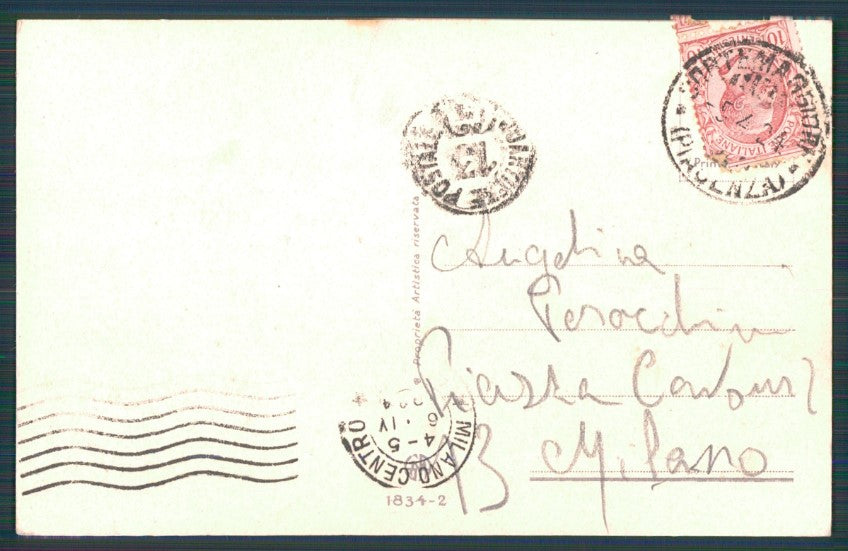 10
POSTE ITALIANE
CORTEMAGGIORE
(PIACENZA)
PORTALETTERE
POSTALE
13
Proprietà Artistica riservata
Angelina
Piazza Cavour
13 Milano
MILANO CENTRO
4-5
6 . IV
1834-2